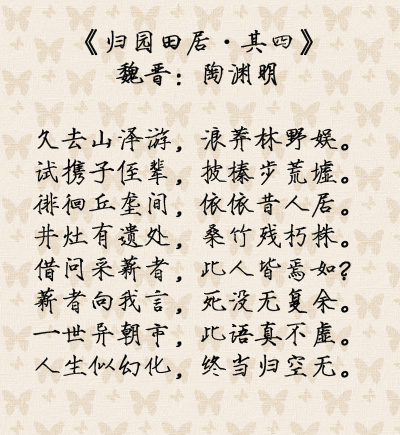 《归园田居·其四》
魏晋：陶渊明
久去山泽游，浪莽林野娱。
试携子侄辈，披榛步荒墟。
徘徊丘垄间，依依昔人居。
井灶有遗处，桑竹残朽株。
借问采薪者，此人皆焉如？
薪者向我言，死没无复余。
一世异朝市，此语真不虚。
人生似幻化，终当归空无。